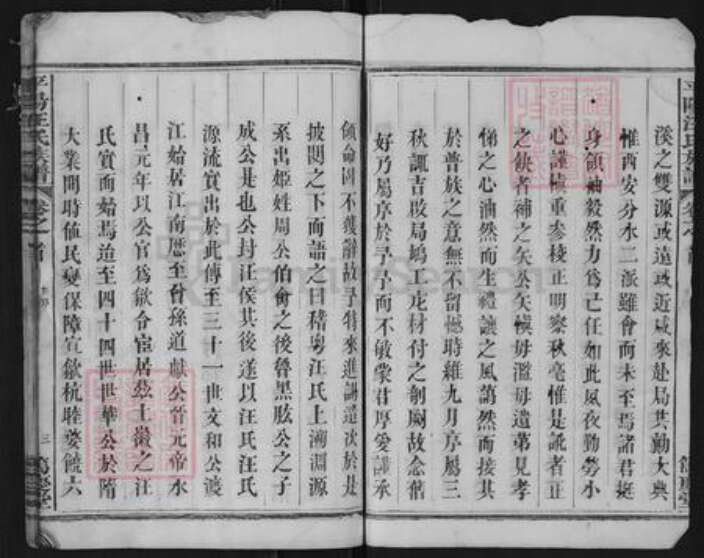 溪之雙源或遠或近咸來赴局共勷大典
惟西安分水二派雖會而未至焉諸君挺
身領袖毅然力為己任如此夙夜勤勞小
心謹慎重參校正明察秋毫惟是訛者正
之缺者補之矣公矣慎毋濫毋遺第見孝
悌之心油然而生禮讓之風藹然而接其
於普族之意無不留憾時維九月序屬三
秋諏吉啟局鳩工庀材付之剞劂故念舊
好乃屬序於予予而不敏蒙君厚愛謙承
領命固不獲辭故予特來進謁造次於是
披閱之下而語之曰稽粵汪氏上溯淵源
系出姬姓周公伯禽之後魯黑肱公之子
成公是也公封汪侯其後遂以汪氏汪氏
源流實出於此傳至三十一世文和公渡
江始居江南歷至晉孫道獻公晉元帝永
昌元年以公官為歙令宦居茲土嶺之汪
氏實而始焉迨至四十四世世華公於隋
大業間時值民變保障宣歙杭睦婺饒六
平陽汪氏族譜 卷之首 三